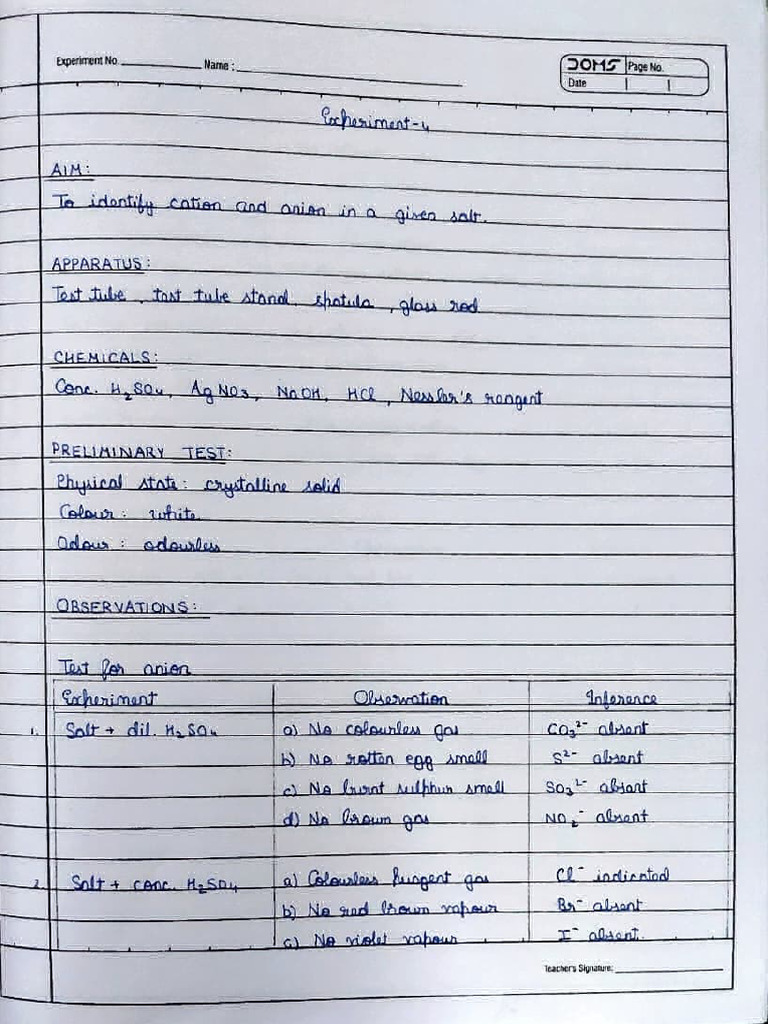 Experiment No. Name :
DOMS Page No.
Date
Experiment-4
AIM:
To identify cation and anion in a given salt.
APPARATUS:
Test tube, test tube stand, spatula, glass rod
CHEMICALS:
Conc. H₂SO₄, AgNO₃, NaOH, HCl, Nessler's reagent
PRELIMINARY TEST:
Physical state: crystalline solid
Colour: white
Odour: odourless
OBSERVATIONS:
Test for anion
Experiment Observation Inference
1. Salt + dil. H₂SO₄ a) No colourless gas CO₃²⁻ absent
b) No rotten egg smell S²⁻ absent
c) No burnt sulphur smell SO₃²⁻ absent
d) No brown gas NO₂⁻ absent
2. Salt + conc. H₂SO₄ a) Colourless pungent gas Cl⁻ indicated
b) No red brown vapour Br⁻ absent
c) No violet vapour I⁻ absent.
Teacher's Signature: